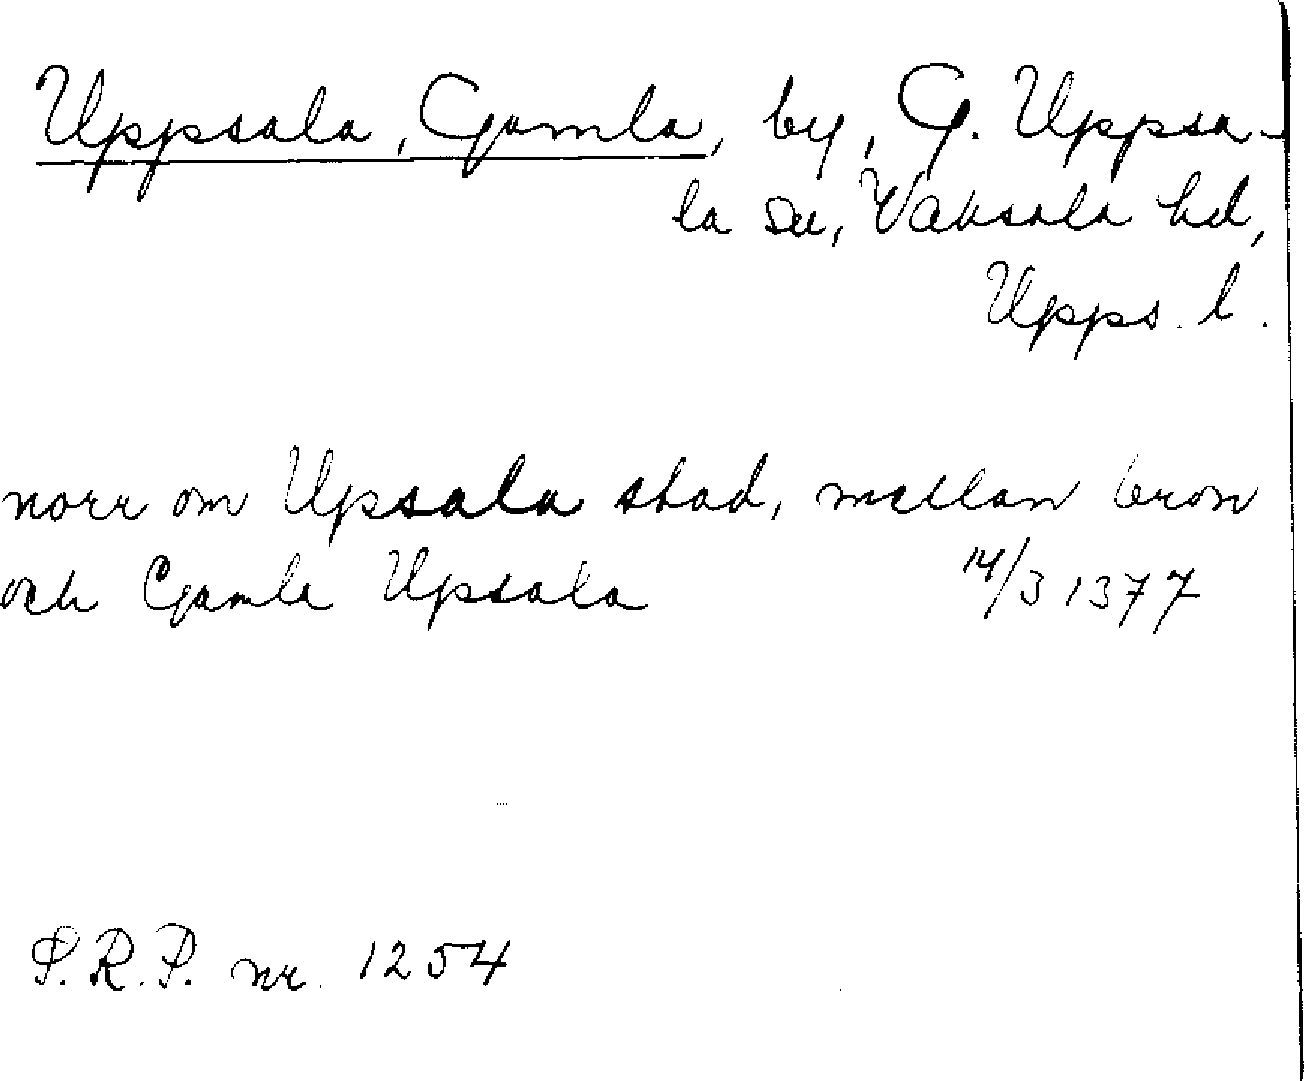 Uppsala, Gamla, by, G. Uppsa-
la sn, Vaksala hd,
Upps. l.
norr om Upsala stad, mellan bron
och Gamla Upsala 14/3 1377
S.R.P. nr. 1254